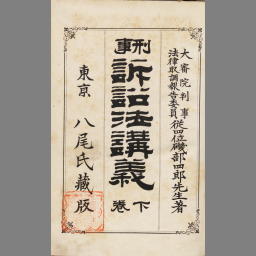 大審院判事從四位磯部四郎先生著
法律取調報告委員
刑事訴訟法講義
下卷
東京 八尾氏藏版